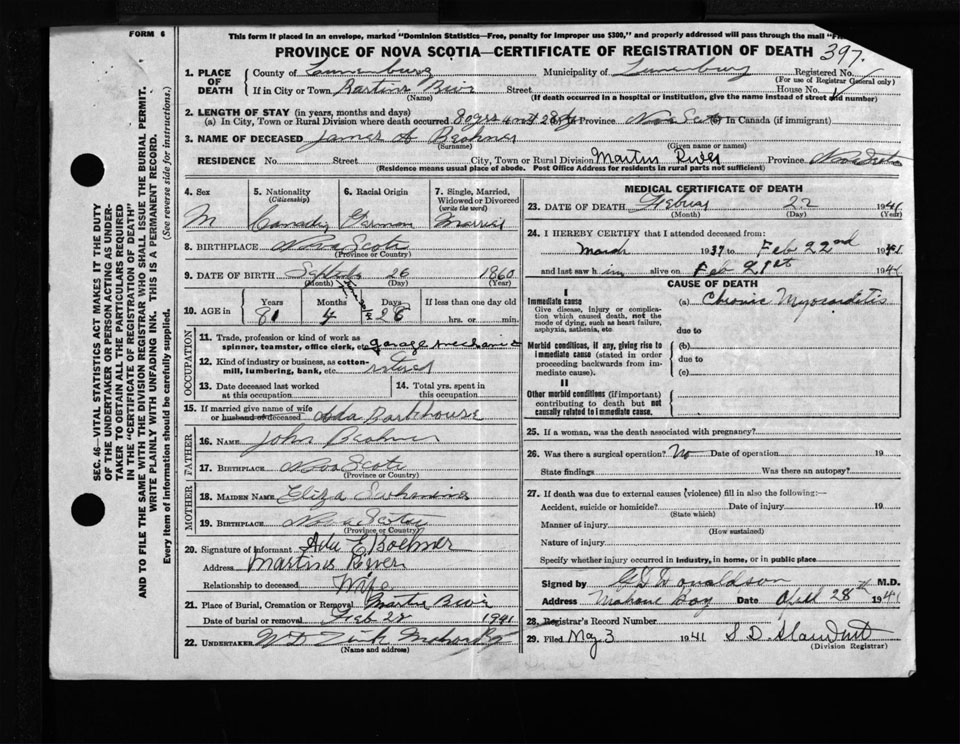 FORM 6
This form if placed in an envelope, marked "Dominion Statistics—Free, penalty for improper use $300," and properly addressed will pass through the mail
PROVINCE OF NOVA SCOTIA—CERTIFICATE OF REGISTRATION OF DEATH 397.
1. PLACE OF DEATH
County of Lunenburg Municipality of Lunenburg Registered No.
(For use of Registrar General only)
If in City or Town Martins River Street House No.
(Name) (If death occurred in a hospital or institution, give the name instead of street and number)
2. LENGTH OF STAY (in years, months and days)
(a) In City, Town or Rural Division where death occurred 80 yrs 4 mt 28 (b) In Province Nova Scotia (c) In Canada (if immigrant)
3. NAME OF DECEASED James A Beahner
(Surname) (Given name or names)
RESIDENCE No. Street City, Town or Rural Division Martins River Province Nova Scotia
(Residence means usual place of abode. Post Office Address for residents in rural parts not sufficient)
4. Sex
M
5. Nationality
(Citizenship)
Canadian
6. Racial Origin
German
7. Single, Married, Widowed or Divorced
(write the word)
Married
8. BIRTHPLACE Nova Scotia
(Province or Country)
9. DATE OF BIRTH Septb 26 1860
(Month) (Day) (Year)
10. AGE in
Years Months Days If less than one day old
81 4 26 hrs. or min.
OCCUPATION
11. Trade, profession or kind of work as
spinner, teamster, office clerk, etc. garage mechanic
12. Kind of industry or business, as cotton-
mill, lumbering, bank, etc. retired
13. Date deceased last worked
at this occupation
14. Total yrs. spent in
this occupation
15. If married give name of wife
or husband of deceased Ada Barkhouse
FATHER
16. NAME John Beahner
17. BIRTHPLACE Nova Scotia
(Province or Country)
MOTHER
18. MAIDEN NAME Eliza
19. BIRTHPLACE Nova Scotia
(Province or Country)
20. Signature of Informant Ada E Boehner
Address Martins River
Relationship to deceased Wife
21. Place of Burial, Cremation or Removal Martins River
Date of burial or removal Feb 28 1941
22. UNDERTAKER WD Zink Mahone Bay
(Name and address)
MEDICAL CERTIFICATE OF DEATH
23. DATE OF DEATH February 22 1941
(Month) (Day)
24. I HEREBY CERTIFY that I attended deceased from:
March 1937 to Feb 22nd 1941
and last saw him alive on Feb 21st 1941
CAUSE OF DEATH
I
Immediate cause
Give disease, injury or complication which caused death, not the mode of dying, such as heart failure, asphyxia, asthenia, etc.
(a) Chronic Myocarditis
due to
Morbid conditions, if any, giving rise to immediate cause (stated in order proceeding backwards from immediate cause).
(b)
due to
(c)
II
Other morbid conditions (if important) contributing to death but not causally related to immediate cause.
25. If a woman, was the death associated with pregnancy?
26. Was there a surgical operation? No Date of operation 19
State findings Was there an autopsy?
27. If death was due to external causes (violence) fill in also the following:—
Accident, suicide or homicide? Date of injury 19
(State which)
Manner of injury
(How sustained)
Nature of injury
Specify whether injury occurred in industry, in home, or in public place
Signed by Donaldson M.D.
Address Mahone Bay Date April 28th 1941
28. Registrar's Record Number
29. Filed May 3 1941 S. D.
(Division Registrar)
SEC. 46—VITAL STATISTICS ACT MAKES IT THE DUTY
OF THE UNDERTAKER OR PERSON ACTING AS UNDER-
TAKER TO OBTAIN ALL THE PARTICULARS REQUIRED
IN THE "CERTIFICATE OF REGISTRATION OF DEATH"
AND TO FILE THE SAME WITH THE DIVISION REGISTRAR WHO SHALL ISSUE THE BURIAL PERMIT.
WRITE PLAINLY WITH UNFADING INK. THIS IS A PERMANENT RECORD.
Every item of information should be carefully supplied. (See reverse side for instructions.)